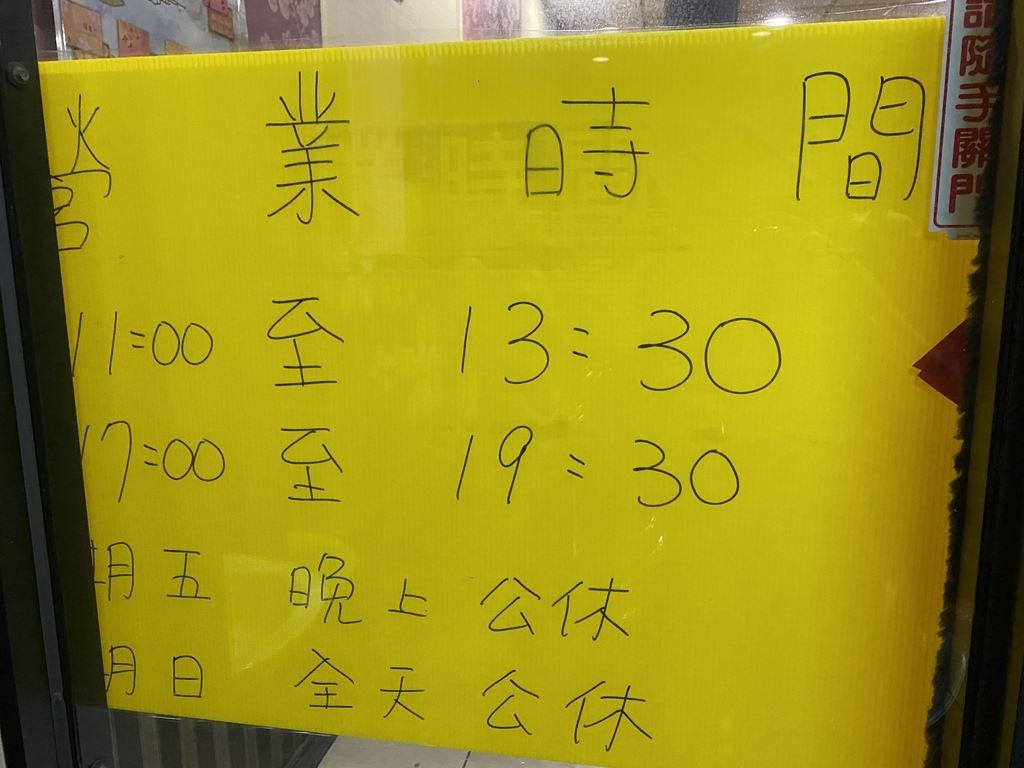 營業時間
11:00 至 13:30
17:00 至 19:30
期五 晚上 公休
期日 全天 公休
隨手關門